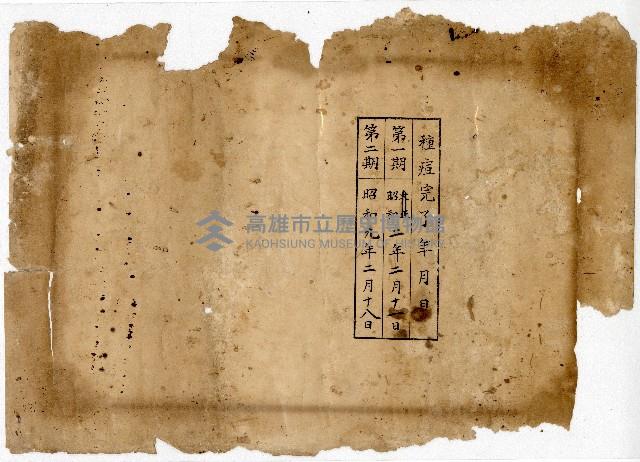 種痘完了年月日
第一期 昭和二年二月十一日
第二期 昭和九年二月十八日
高雄市立歷史博物館
KAOHSIUNG MUSEUM OF HISTORY